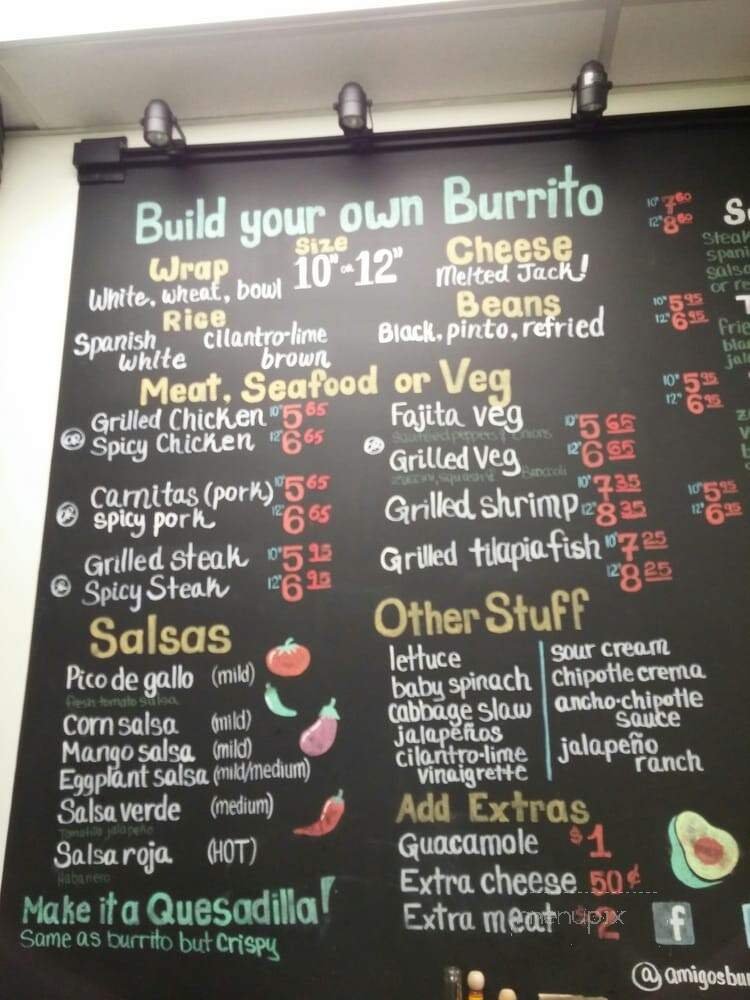 Build your own Burrito
Wrap
White, wheat, bowl
Size
10" or 12"
Cheese
Melted Jack!
Rice
Spanish cilantro-lime
white brown
Beans
Black, pinto, refried
Meat, Seafood or Veg
Grilled Chicken 10" 5 65
OR Spicy Chicken 12" 6 65
Carnitas (pork) 10" 5 65
OR spicy pork 12" 6 65
Grilled steak 10" 5 95
OR Spicy Steak 12" 6 95
Fajita veg 10" 5 65
OR Grilled Veg 12" 6 65
Grilled shrimp 10" 7 35
12" 8 35
Grilled tilapia fish 10" 7 25
12" 8 25
Salsas
Pico de gallo (mild)
fresh tomato salsa
Corn salsa (mild)
Mango salsa (mild)
Eggplant salsa (mild/medium)
Salsa verde (medium)
Tomatillo jalapeño
Salsa roja (HOT)
Habanero
Make it a Quesadilla!
Same as burrito but Crispy
Other Stuff
lettuce
baby spinach
cabbage slaw
jalapeños
cilantro-lime
vinaigrette
sour cream
chipotle crema
ancho-chipotle
sauce
jalapeño
ranch
Add Extras
Guacamole $1
Extra cheese 50¢
Extra meat $2
menupix
f
@amigosbu
10" 7 60
12" 8 60
Steak
spani
salsa
or re
10" 5 95
12" 6 95
Frie
bla
jal
10" 5 95
12" 6 95
10" 5 95
12" 6 95